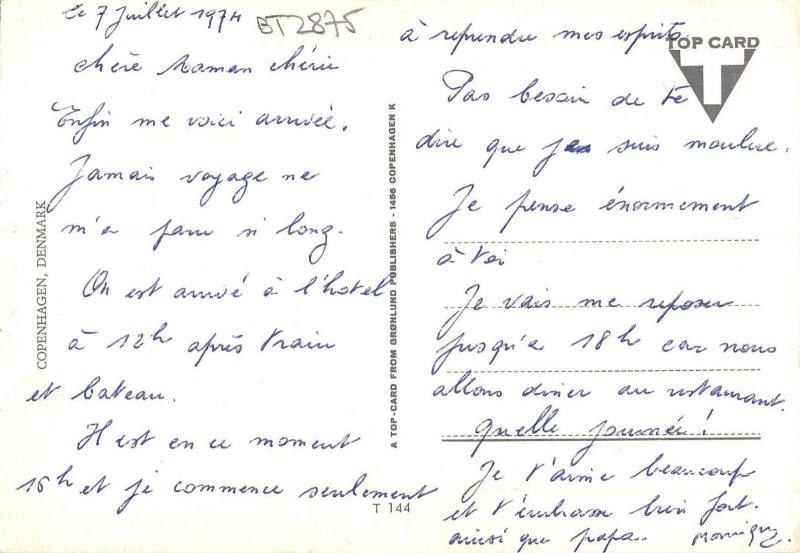 le 7 Juillet 1974
BT2875
chère Maman chérie
Enfin me voici arrivée.
Jamais voyage ne
m'a paru si long.
On est arrivé à l'hotel
à 12h après train
et bateau.
Il est en ce moment
16h et je commence seulement
COPENHAGEN, DENMARK
A TOP-CARD FROM GRØNLUND PUBLISHERS - 1456 COPENHAGEN K
T 144
TOP CARD
T
à reprendre mes esprits
Pas besoin de te
dire que je suis moulue.
Je pense énormement
à toi
Je vais me reposer
jusqu'a 18h car nous
allons diner au restaurant.
Quelle journée!
Je t'aime beaucoup
et t'embrasse bien fort.
ainsi que papa..